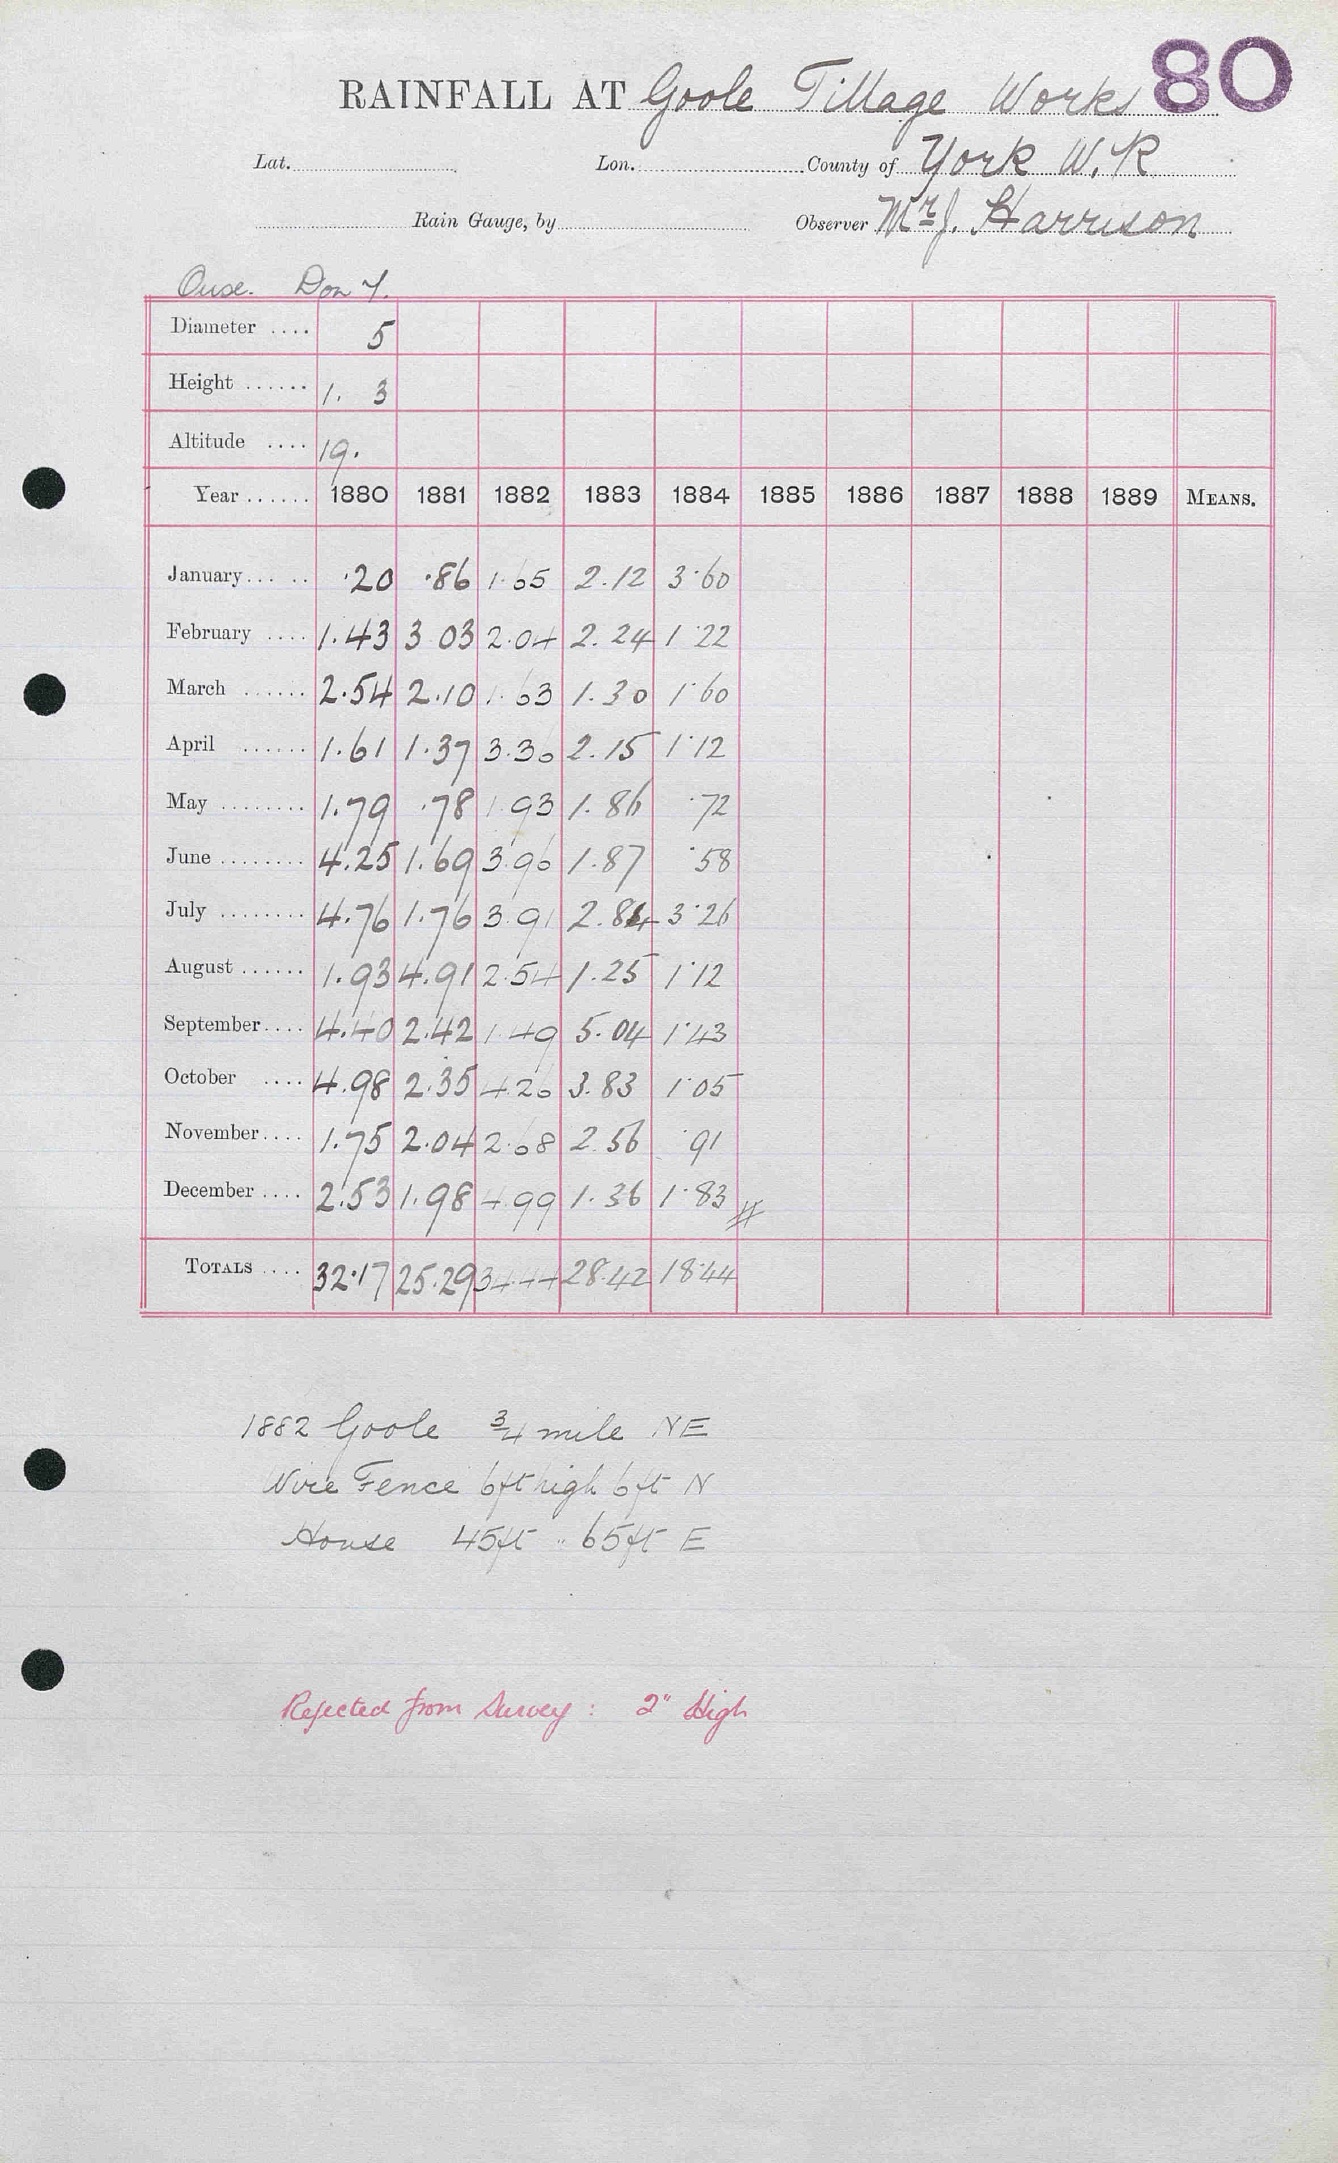 80
RAINFALL AT Goole Tillage Works
Lat. Lon. County of York W.R
Rain Gauge, by Observer Mr J. Harrison
Ouse. Don Y.
Diameter .... 5
Height ...... 1. 3
Altitude .... 19.
Year ...... 1880 1881 1882 1883 1884 1885 1886 1887 1888 1889 MEANS.
January ... .. ·20 ·86 1·65 2.12 3·60
February .... 1.43 3 03 2·04 2.24 1·22
March ...... 2.54 2.10 1·63 1.30 1·60
April ...... 1.61 1.37 3.36 2.15 1·12
May ........ 1.79 .78 1.93 1.86 ·72
June ........ 4.25 1.69 3.96 1.87 ·58
July ........ 4.76 1.76 3.91 2.84 3·26
August ...... 1.93 4.91 2.54 1.25 1·12
September .... 4.40 2.42 1.49 5.04 1·43
October .... 4.98 2.35 4.26 3.83 1·05
November .... 1.75 2.04 2.68 2.56 ·91
December .... 2.53 1.98 4.99 1.36 1·83 //
TOTALS .... 32.17 25.29 34.44 28.42 18.44
1882 Goole 3/4 mile NE
Wire Fence 6ft high 6ft N
House 45ft " 65ft E
Rejected from Survey : 2" High